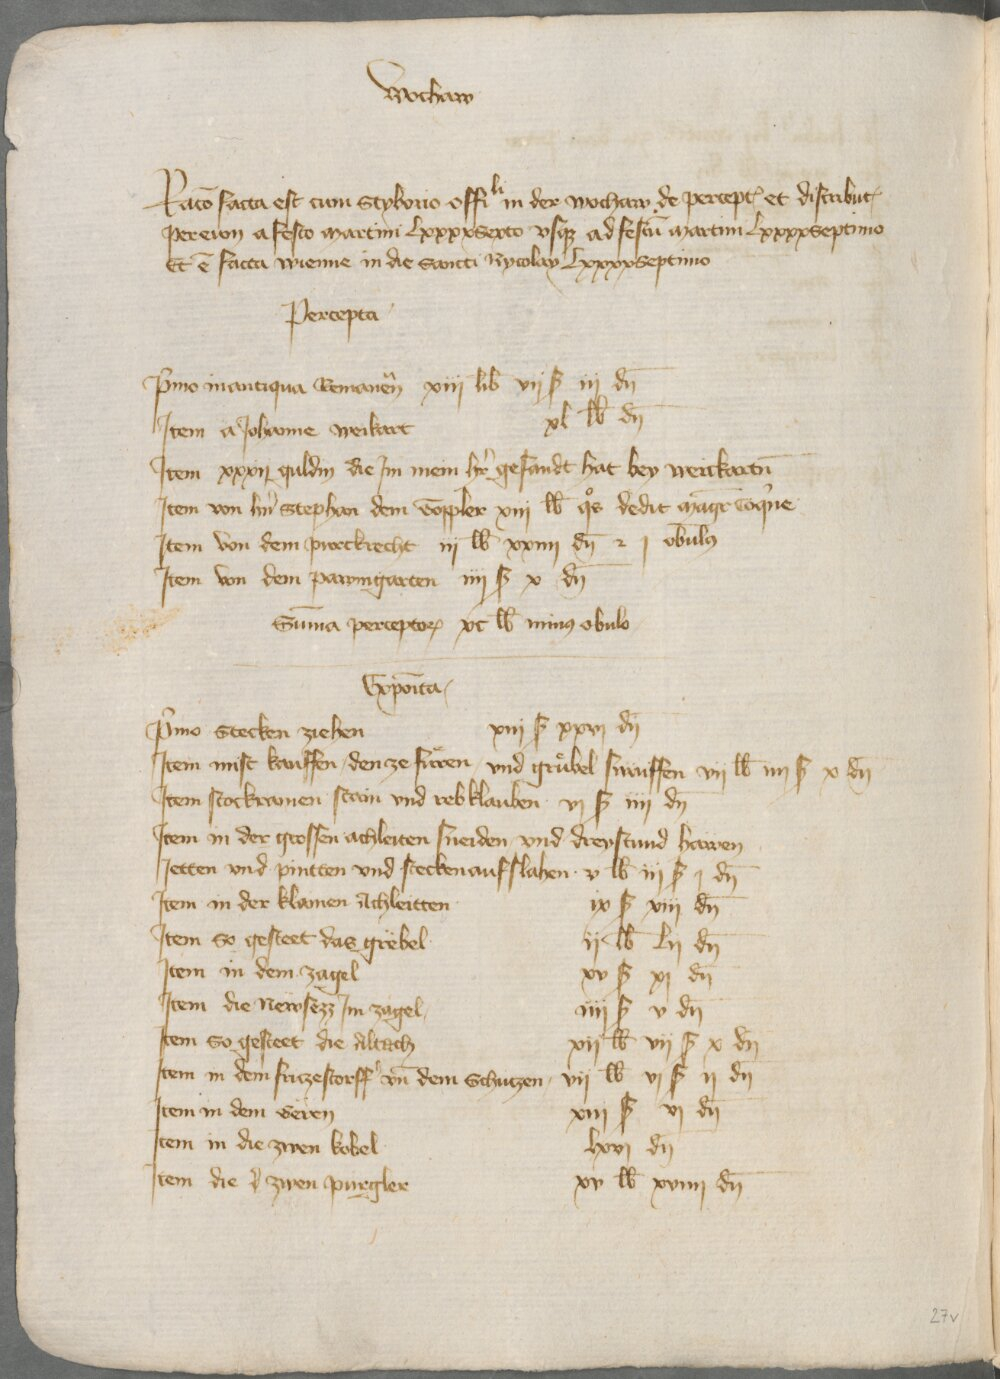 Wochaw
Racō facta est cum Styborio offili in der wochaw de percept et distribut
per eum a festo Martini Lxxxxsexto usqz ad festū Martini Lxxxxseptimo
Et ē facta Wienne in die Sancti Nycolay Lxxxxseptimo
Percepta
Pmo in antiqua Remanen xiij lib vij ß iij dn
Item a Johanne weikart xl lb dn
Item xxxij guldin die Im mein hr gesandt hat bey weickartn
Item von hn Stephan dem Toppler xiij lb qs dedit magr Coqne
Item von dem purckrecht iij lb xxiiij dn 2 j obulus
Item von dem pawmgarten iiij ß x dn
Sūma perceptor xc lb minus obulo
Exposita
Pmo Stecken ziehen xiij ß xxvj dn
Item mist kauffen, den ze fūren, und grübel swaiffen vij lb iiij ß x dn
Item stockramen stain und rebklauben vj ß iiij dn
Item in der grossen achleiten sneiden und dreystund hawen
Jetten und pintten und stecken aufslahen v lb iij ß j dn
Item in der klainen Achleitten ix ß xiij dn
Item so gesteet das grëbel ij lb Lij dn
Item in dem zagel xv ß xj dn
Item die Newsezz Im zagel iiij ß v dn
Item so gesteet die Altach xij lb vij ß x dn
Item in dem fritzestorffr vn dem Schutzen vij lb vj ß ij dn
Item in dem Gëren xiij ß vj dn
Item in die zwen kobel Lxvj dn
Item die zwen purgler xv lb xviiij dn
27v